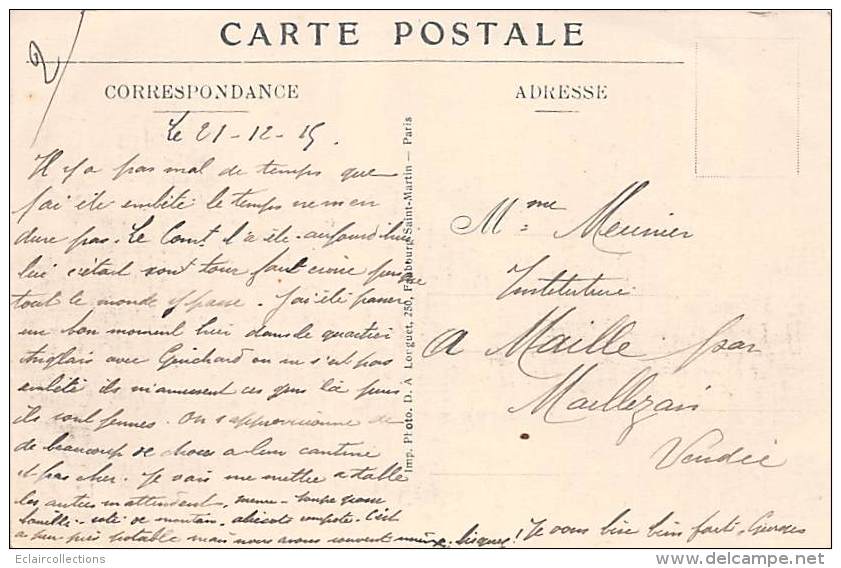 2
CARTE POSTALE
CORRESPONDANCE
ADRESSE
Le 21-12-15.
Il y a pas mal de temps que
j'ai été embêté. le temps ne m'en
dure pas. Le Comt l'a été aujourd'hui
lui c'était sont tour faut croire puisque
tout le monde y passe. J'ai été passer
un bon moment hier dans le quartier
Anglais avec Guichard on ne s'est pas
embêté ils m'amusent ces gens là puis
ils sont jeunes. On s'approvisionne de
de beaucoup de choses a leur cantine
et pas cher. Je vais me mettre a table
les autres m'attendent, menu - soupe grasse
bouilli - coté de mouton, compote. C'est
a peu près potable mais nous avons souvent bisque!
Je vous bise bien fort. Georges
Imp. Photo. D. A Longuet, 250, Faubourg Saint-Martin — Paris
Mme Meunier
Institutrice
A Maillé par
Maillezais
Vendée
Eclaircollections
www.delcampe.net